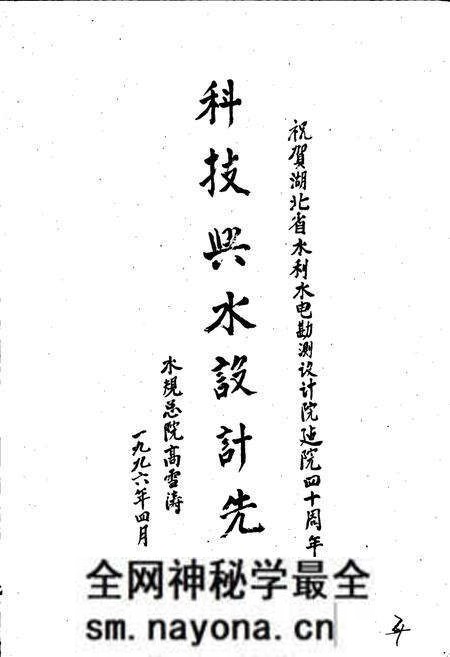 祝賀湖北省水利水电勘测设计院建院四十周年
科技興水設計先
水規总院高雪涛
一九九六年四月
全网神秘学最全
sm.nayona.cn